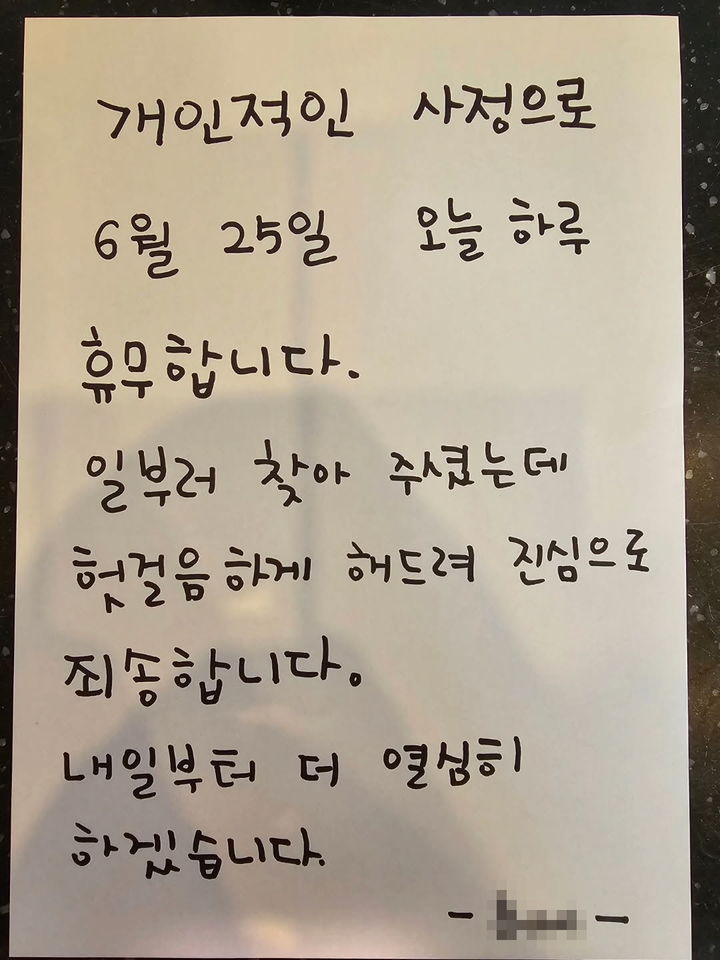 개인적인 사정으로
6월 25일 오늘 하루
휴무합니다.
일부러 찾아 주셨는데
헛걸음하게 해드려 진심으로
죄송합니다.
내일부터 더 열심히
하겠습니다.